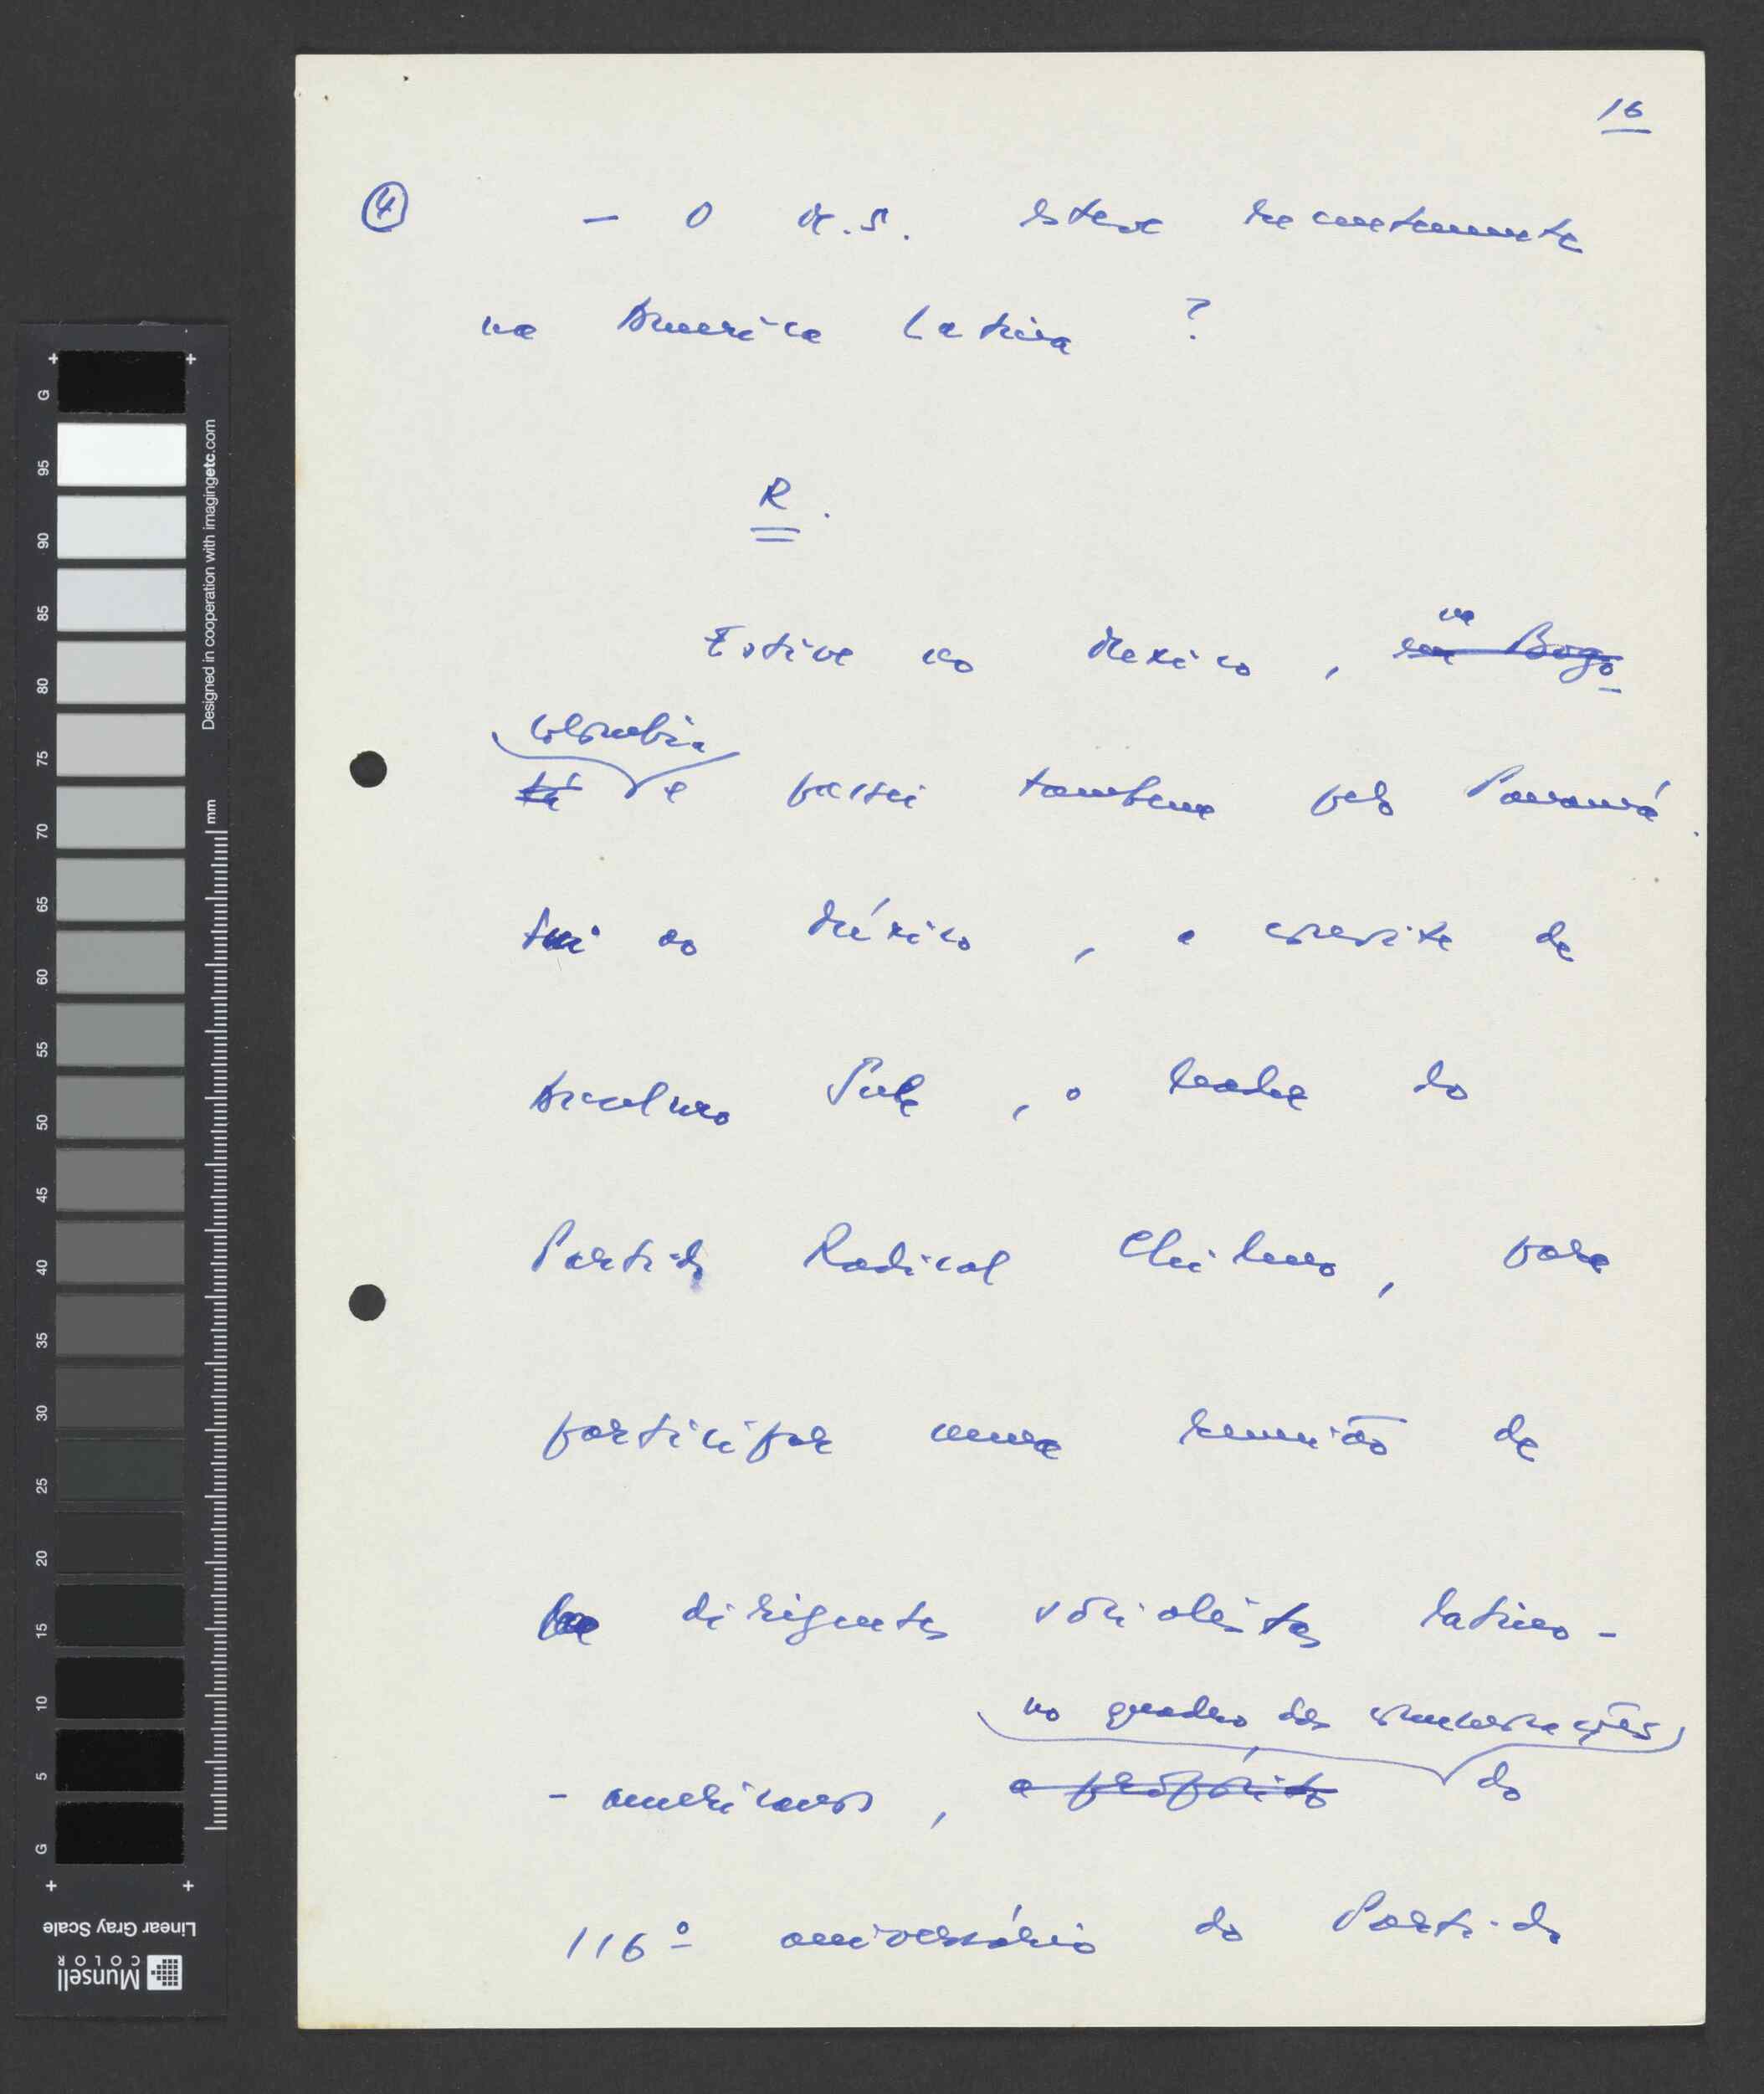 16
④ – O M.S. esteve recentemente
na America Latina ?
R.
Estive no Mexico, em Bogo-
na
Colombia
tá e passei tambem pelo Panamá.
Fui ao México, a convite de
Anselmo Sule, o leader do
Partido Radical Chileno, para
participar numa reunião de
dirigentes socialistas latino-
no quadro das comemorações
- americanos, a propósito do
116º aniversário do Partido
G
95
90
85
80
75
70
65
60
55
50
45
40
35
30
25
20
15
10
5
G
Designed in cooperation with imagingetc.com
mm
Linear Gray Scale
Munsell
COLOR